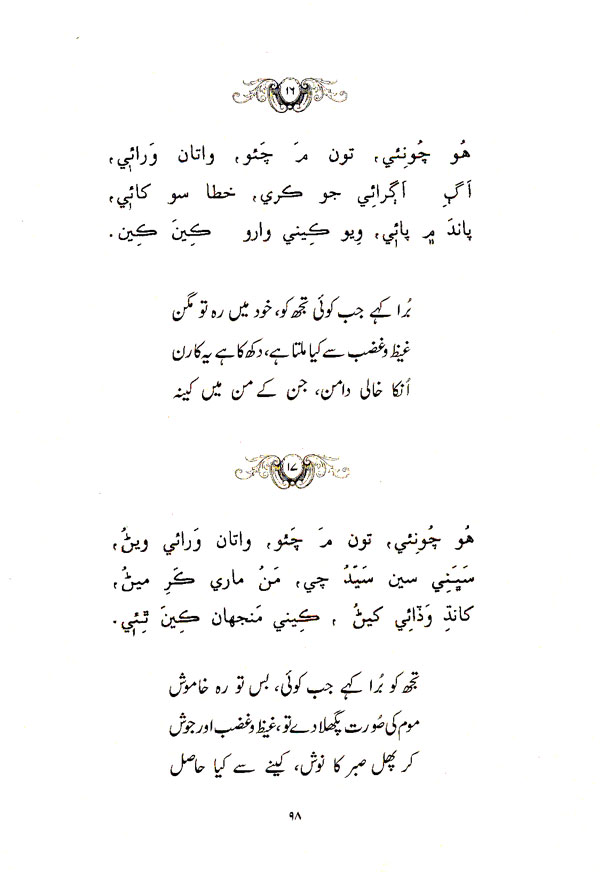 ۱۶
هُو چُونِئي، تون مَ چَئو، واتان وَرائي،
اَڳِ اَڳرائِي جو ڪري، خطا سو کائي،
پاندَ ۾ پائي، وِيو ڪِيني وارو ڪِينَ ڪِين.
بُرا کہے جب کوئی تجھ کو، خود میں رہ تو مگن
غیظ و غضب سے کیا ملتا ہے، دکھ کا ہے یہ کارن
اُنکا خالی دامن، جن کے من میں کینہ
۱۷
هُو چُونِئي، تون مَ چَئو، واتان وَرائي ويڻُ،
سَڀَني سين سَيّدُ چي، مَنُ ماري ڪَرِ ميڻُ،
کاندِ وَڏائي کيڻُ ، ڪِيني مَنجهان ڪِينَ ٿِئي.
تجھ کو بُرا کہے جب کوئی، بس تو رہ خاموش
موم کی صُورت پگھلا دے تو، غیظ و غضب اور جوش
کر پھل صبر کا نوش، کینے سے کیا حاصل
۹۸